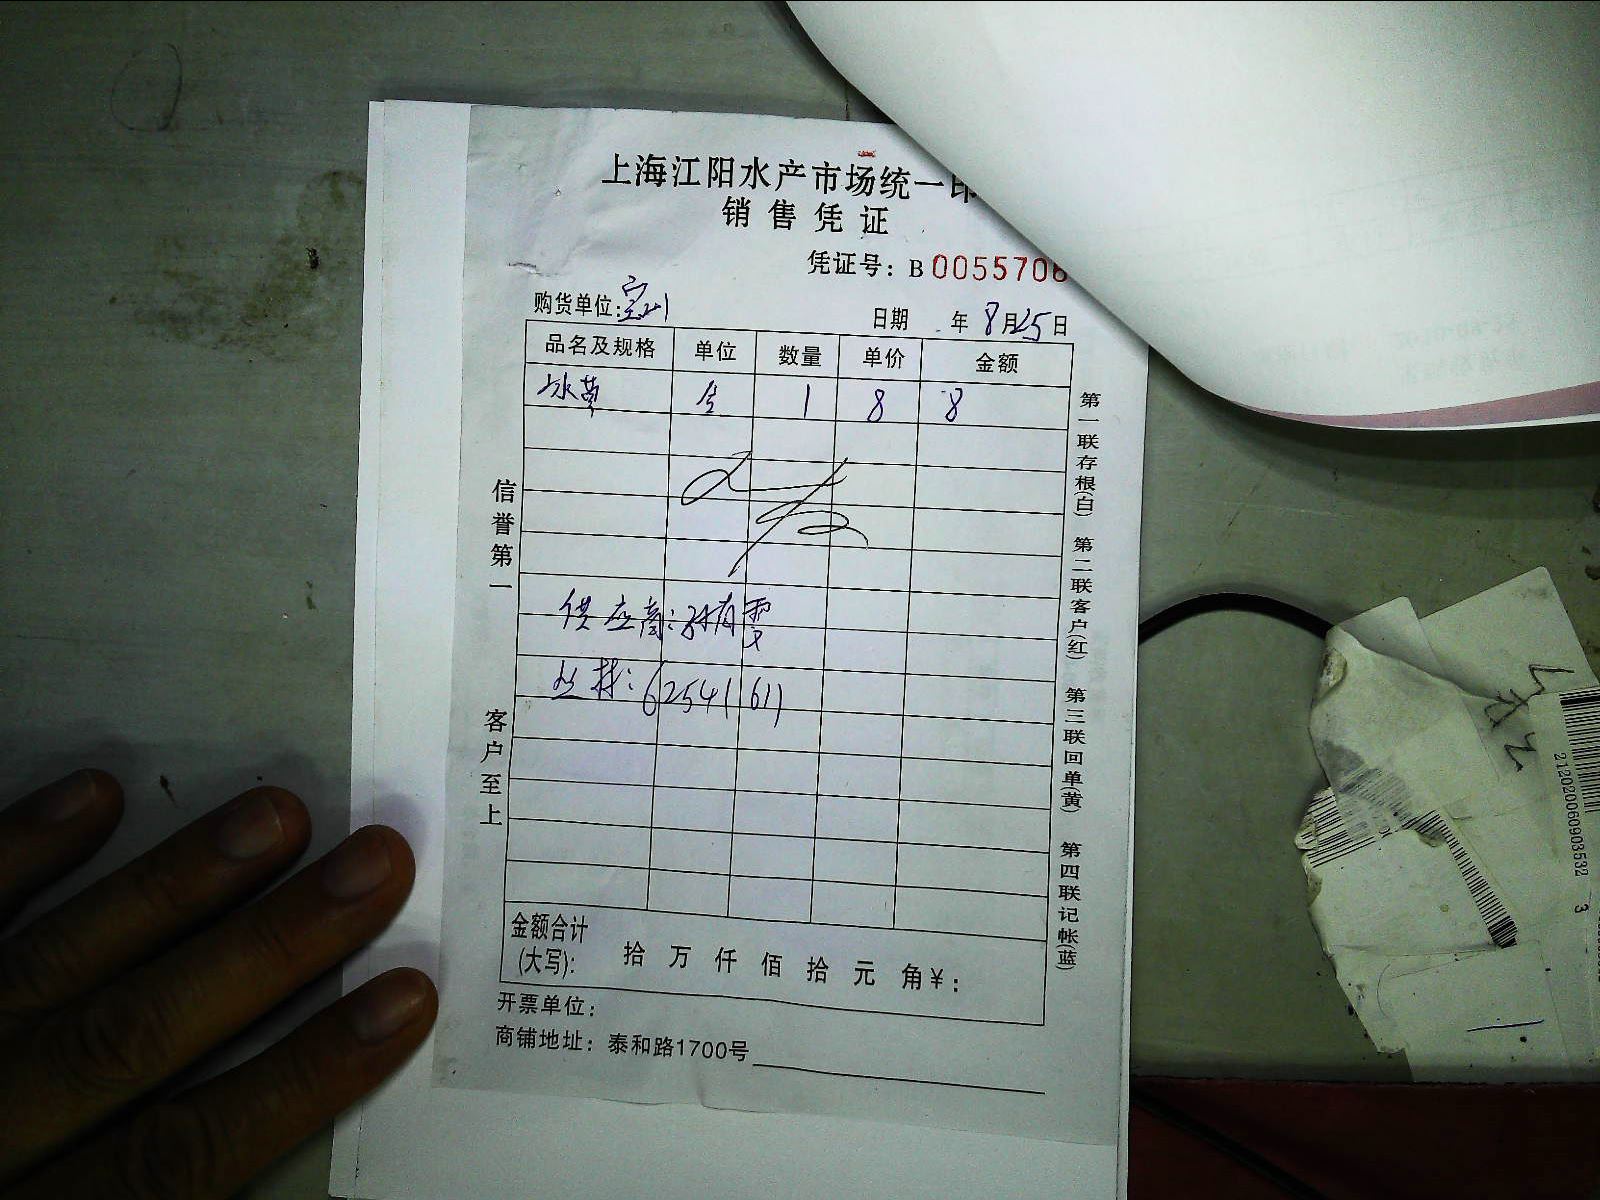 上海江阳水产市场统一印
销售凭证
凭证号：B 0055706
购货单位：宝山
日期 年 8月25日
品名及规格 单位 数量 单价 金额
冰草 盒 1 8 8
供应商：孙有雯
丛林：62541611
信誉第一
客户至上
第一联存根(白) 第二联客户(红) 第三联回单(黄) 第四联记帐(蓝)
金额合计
(大写)： 拾 万 仟 佰 拾 元 角 ¥：
开票单位：
商铺地址：泰和路1700号
212020060903532 3